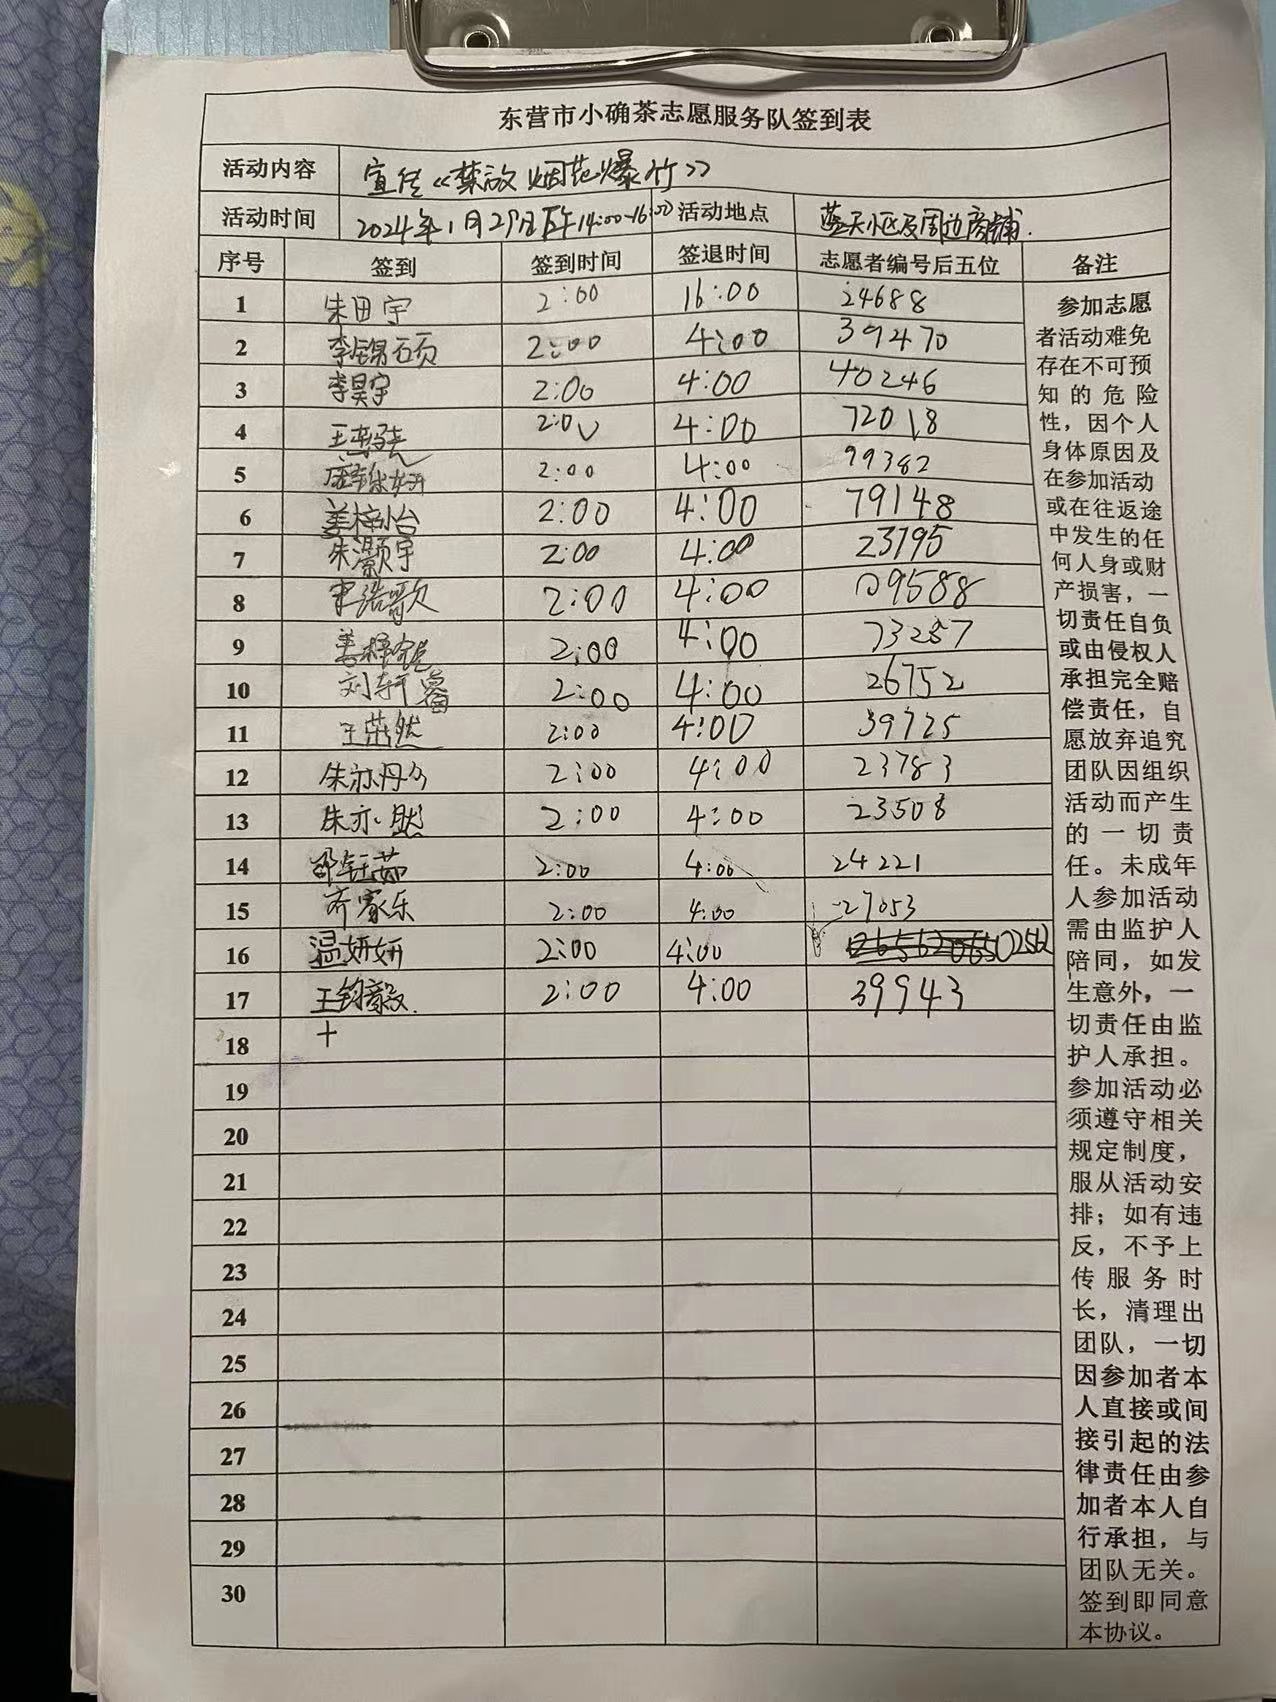 东营市小确茶志愿服务队签到表
活动内容 宣传《禁放烟花爆竹》
活动时间 2024年1月29日下午14:00-16:00 活动地点 蓝天小区及周边商铺.
序号 签到 签到时间 签退时间 志愿者编号后五位 备注
1 朱田宇 2:00 16:00 24688
2 李锦硕 2:00 4:00 39470
3 李昊宇 2:00 4:00 40246
4 2:00 4:00 72018
5 2:00 4:00 99382
6 姜梓怡 2:00 4:00 79148
7 朱灏宇 2:00 4:00 23795
8 宋浩歌 2:00 4:00 09588
9 2:00 4:00 73287
10 刘轩睿 2:00 4:00 26752
11 然 2:00 4:00 39725
12 朱亦丹 2:00 4:00 23783
13 朱亦然 2:00 4:00 23508
14 邵钰茹 2:00 4:00 24221
15 齐家乐 2:00 4:00 27053
16 温妍妍 2:00 4:00
17 王钧毅. 2:00 4:00 39943
18
19
20
21
22
23
24
25
26
27
28
29
30
参加志愿
者活动难免
存在不可预
知的危险
性，因个人
身体原因及
在参加活动
或在往返途
中发生的任
何人身或财
产损害，一
切责任自负
或由侵权人
承担完全赔
偿责任，自
愿放弃追究
团队因组织
活动而产生
的一切责
任。未成年
人参加活动
需由监护人
陪同，如发
生意外，一
切责任由监
护人承担。
参加活动必
须遵守相关
规定制度，
服从活动安
排；如有违
反，不予上
传服务时
长，清理出
团队，一切
因参加者本
人直接或间
接引起的法
律责任由参
加者本人自
行承担，与
团队无关。
签到即同意
本协议。